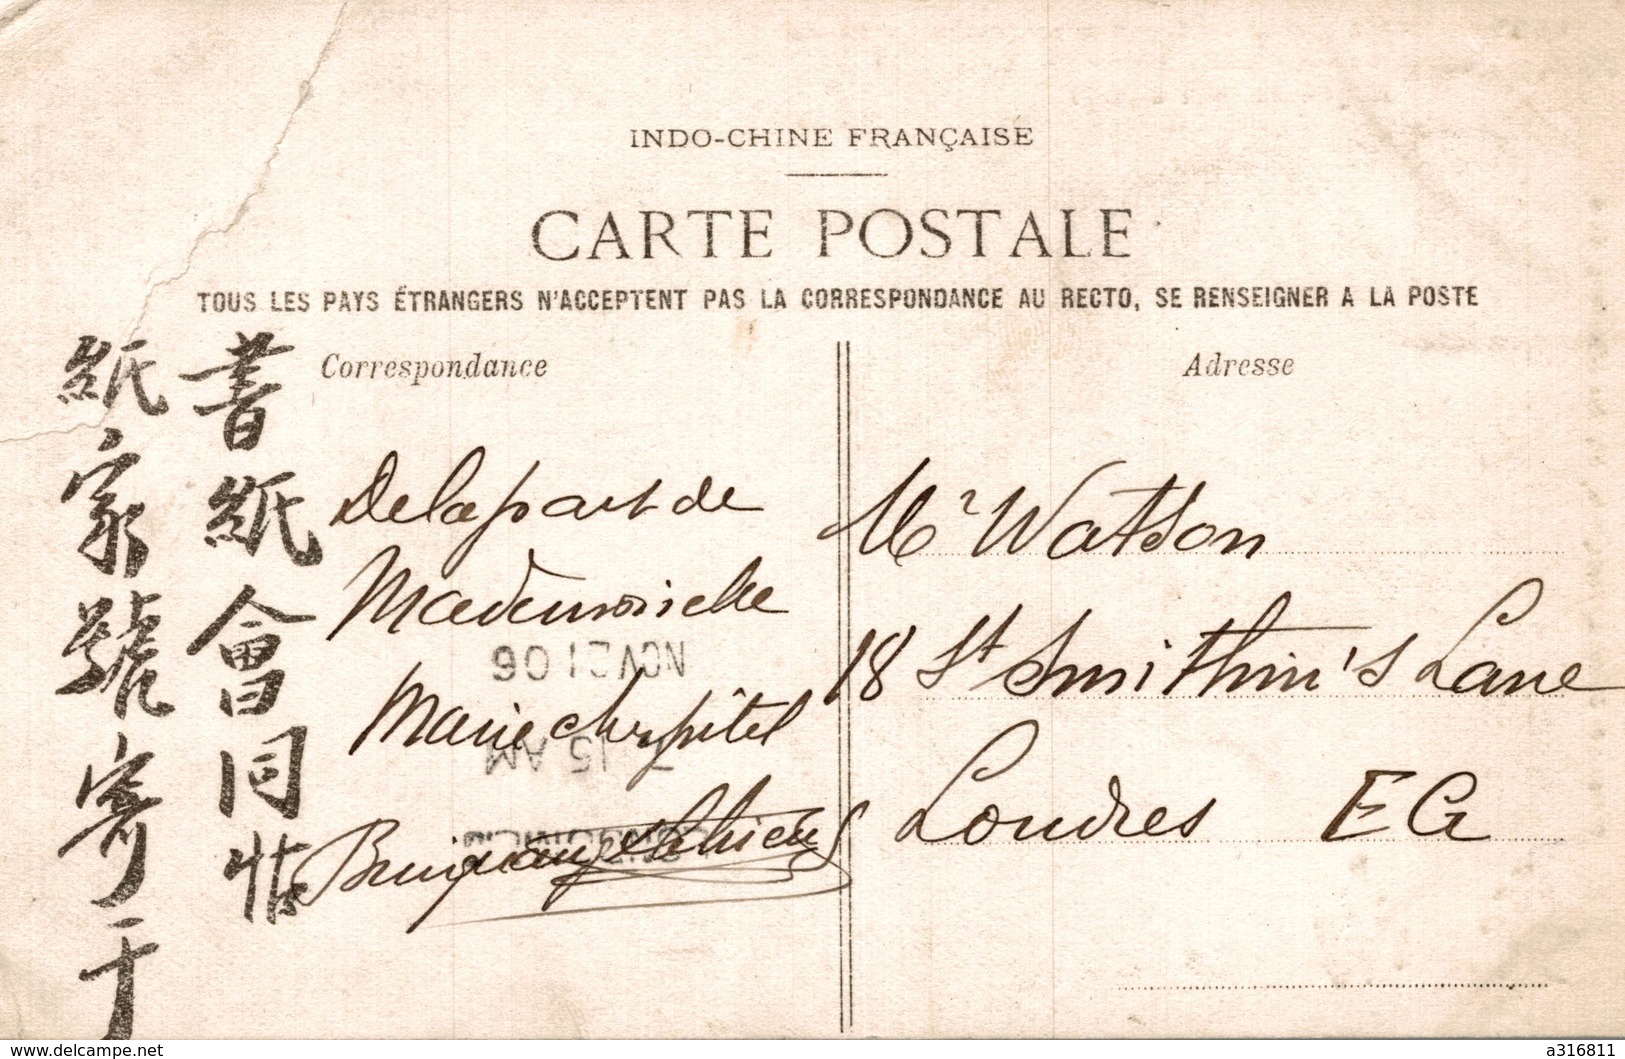 INDO-CHINE FRANÇAISE
CARTE POSTALE
TOUS LES PAYS ÉTRANGERS N'ACCEPTENT PAS LA CORRESPONDANCE AU RECTO, SE RENSEIGNER A LA POSTE
Correspondance
書紙會同帖
紙家號寄于
De la part de
Mademoiselle
Marie
NOV 21 06
15 AM
Adresse
Mr Watson
18 St Smithin's Lane
Londres EG
www.delcampe.net
a316811